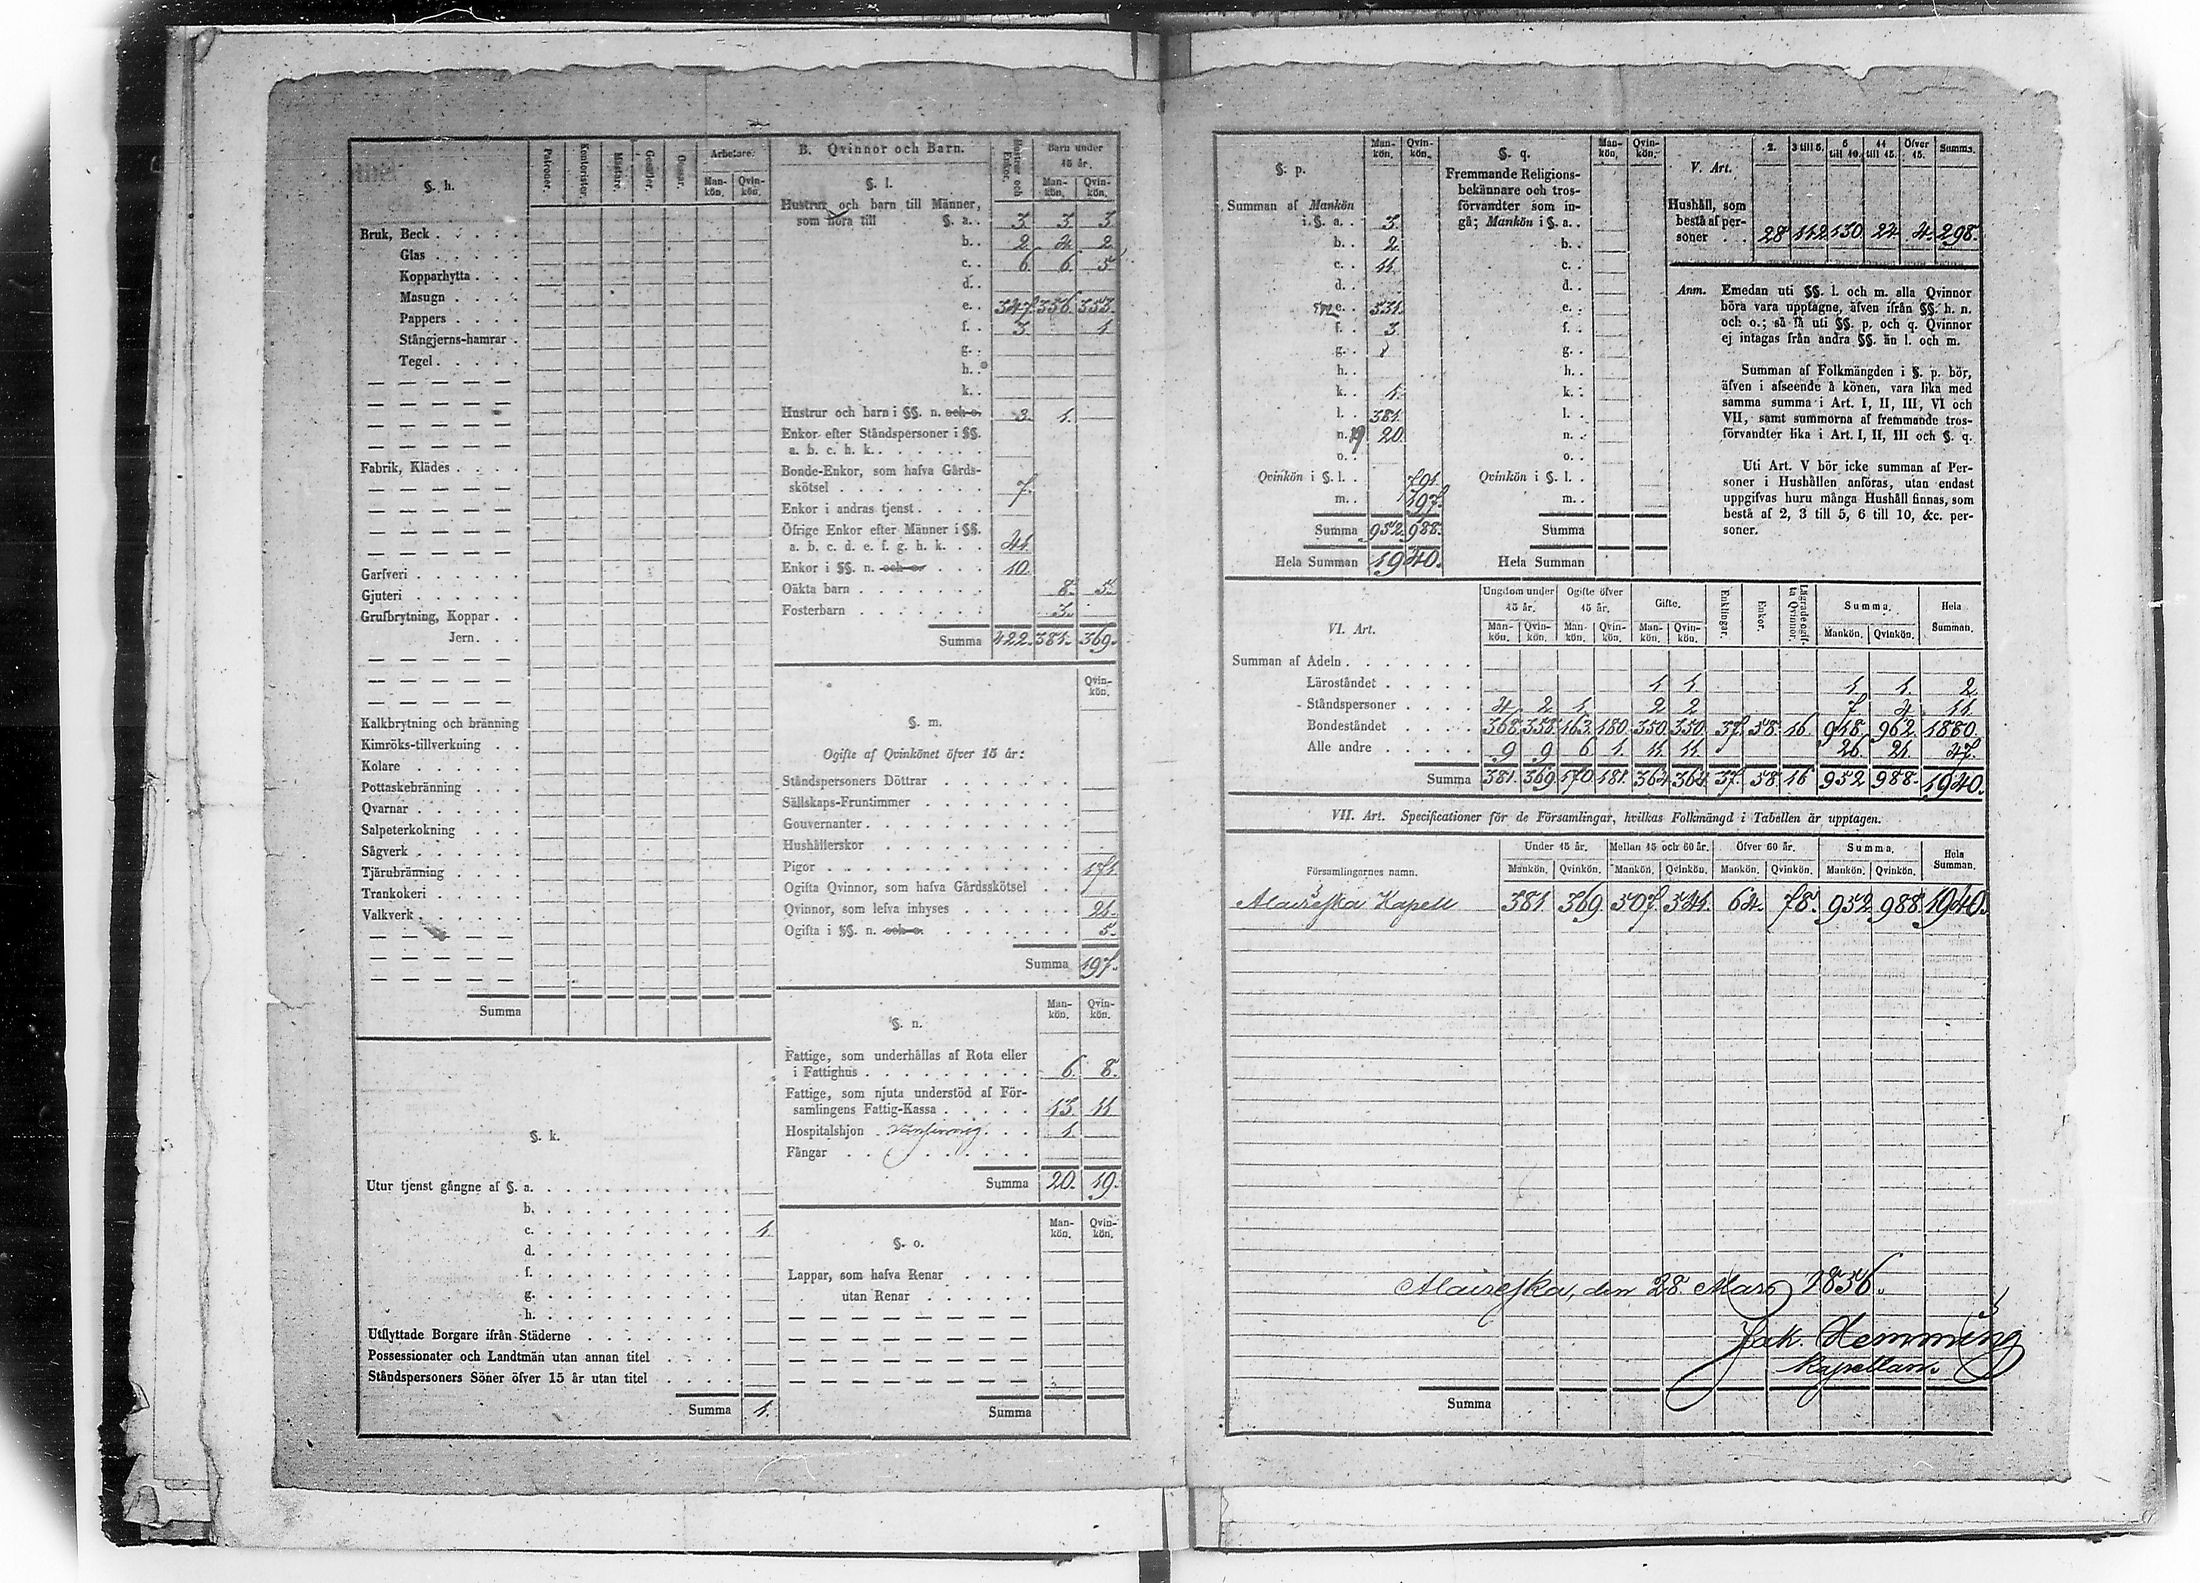 §. h.
Patroner.
Kontorister.
Mästare.
Gesäller.
Gossar.
Arbetare.
Mankön.
Qvinkön.
Bruk, Beck
Glas
Kopparhytta
Masugn
Pappers
Stångjerns-hamrar
Tegel
Fabrik, Klädes
Garfveri
Gjuteri
Grufbrytning, Koppar
Jern
Kalkbrytning och bränning
Kimröks-tillverkning
Kolare
Pottaskebränning
Qvarnar
Salpeterkokning
Sågverk
Tjärubränning
Trankokeri
Valkverk
Summa
§. k.
Utur tjenst gångne af §. a.
b.
c. 1.
d.
f.
g.
h.
Utflyttade Borgare ifrån Städerne
Possessionater och Landtmän utan annan titel
Ståndspersoners Söner öfver 15 år utan titel
Summa 1.
B. Qvinnor och Barn.
Hustrur och Enkor.
Barn under 15 år.
Mankön. Qvinkön.
§. l.
Hustrur och barn till Männer,
som höra till §. a. 3. 3. 3.
b. 2. 4. 2.
c. 6. 6. 5.
d.
e. 347. 356. 353.
f. 3. 1
g.
h.
k.
Hustrur och barn i §§. n. och o. 3. 1.
Enkor efter Ståndspersoner i §§.
a. b. c. h. k.
Bonde-Enkor, som hafva Gårds-
skötsel 7.
Enkor i andras tjenst
Öfrige Enkor efter Männer i §§.
a. b. c. d. e. f. g. h. k. 41.
Enkor i §§. n. och o. 10.
Oäkta barn 8. 5.
Fosterbarn 3.
Summa 422. 381. 369.
Qvinkön.
§. m.
Ogifte af Qvinkönet öfver 15 år:
Ståndspersoners Döttrar
Sällskaps-Fruntimmer
Gouvernanter
Hushållerskor
Pigor 171
Ogifta Qvinnor, som hafva Gårdsskötsel
Qvinnor, som lefva inhyses 21.
Ogifta i §§. n. och o. 5.
Summa 197.
Mankön. Qvinkön.
§. n.
Fattige, som underhållas af Rota eller
i Fattighus 6. 8.
Fattige, som njuta understöd af För-
samlingens Fattig-Kassa 13. 11
Hospitalshjon 1.
Fångar
Summa 20. 19.
Mankön. Qvinkön.
§. o.
Lappar, som hafva Renar
utan Renar
Summa
§. p.
Mankön. Qvinkön.
Summan af Mankön
i §. a. 3.
b. 2.
c. 11.
d.
e. 531.
f. 3.
g.
h.
k. 1.
l. 381.
n. 19 20.
o.
Qvinkön i §. l. 791.
m. 197.
Summa 952. 988.
Hela Summan 1940.
§. q.
Mankön. Qvinkön.
Fremmande Religions-
bekännare och tros-
förvandter som in-
gå; Mankön i §. a.
b.
c.
d.
e.
f.
g.
h.
k.
l.
n.
o.
Qvinkön i §. l.
m.
Summa
Hela Summan
V. Art.
2. 3 till 5. 6 till 10. 11 till 15. Öfver 15. Summa.
Hushåll, som
bestå af per-
soner 28 112 130 24 4. 298.
Anm. Emedan uti §§. l. och m. alla Qvinnor
böra vara upptagne, äfven ifrån §§. h. n.
och o.; så få uti §§. p. och q. Qvinnor
ej intagas från andra §§. än l. och m.
Summan af Folkmängden i §. p. bör,
äfven i afseende å könen, vara lika med
samma summa i Art. I, II, III, VI och
VII, samt summorna af fremmande tros-
förvandter lika i Art. I, II, III och §. q.
Uti Art. V bör icke summan af Per-
soner i Hushållen anföras, utan endast
uppgifvas huru många Hushåll finnas, som
bestå af 2, 3 till 5, 6 till 10, &c. per-
soner.
VI. Art.
Ungdom under 15 år. Ogifte öfver 15 år. Gifte. Enklingar. Enkor. Lägrade ogifta Qvinnor. Summa. Hela Summan.
Mankön. Qvinkön. Mankön. Qvinkön. Mankön. Qvinkön. Mankön. Qvinkön.
Summan af Adeln
Läroståndet 1 1. 1. 1. 2.
Ståndspersoner 4. 2 1. 2 2 7 4 11.
Bondeståndet 368. 358. 163. 180. 350. 350. 37. 58. 16. 918. 962. 1880.
Alle andre 9 9 6. 1. 11. 11. 26. 21. 47.
Summa 381. 369 170. 181. 364. 364. 37. 58. 16 952 988. 1940.
VII. Art. Specificationer för de Församlingar, hvilkas Folkmängd i Tabellen är upptagen.
Församlingarnes namn.
Under 15 år. Mellan 15 och 60 år. Öfver 60 år. Summa. Hela Summan.
Mankön. Qvinkön. Mankön. Qvinkön. Mankön. Qvinkön. Mankön. Qvinkön.
Alaveteka Kapell 381. 369 507. 541. 64. 78. 952 988. 1940.
den 28. Mars 1856.
Jak. Hemming
Kapellan.
Summa